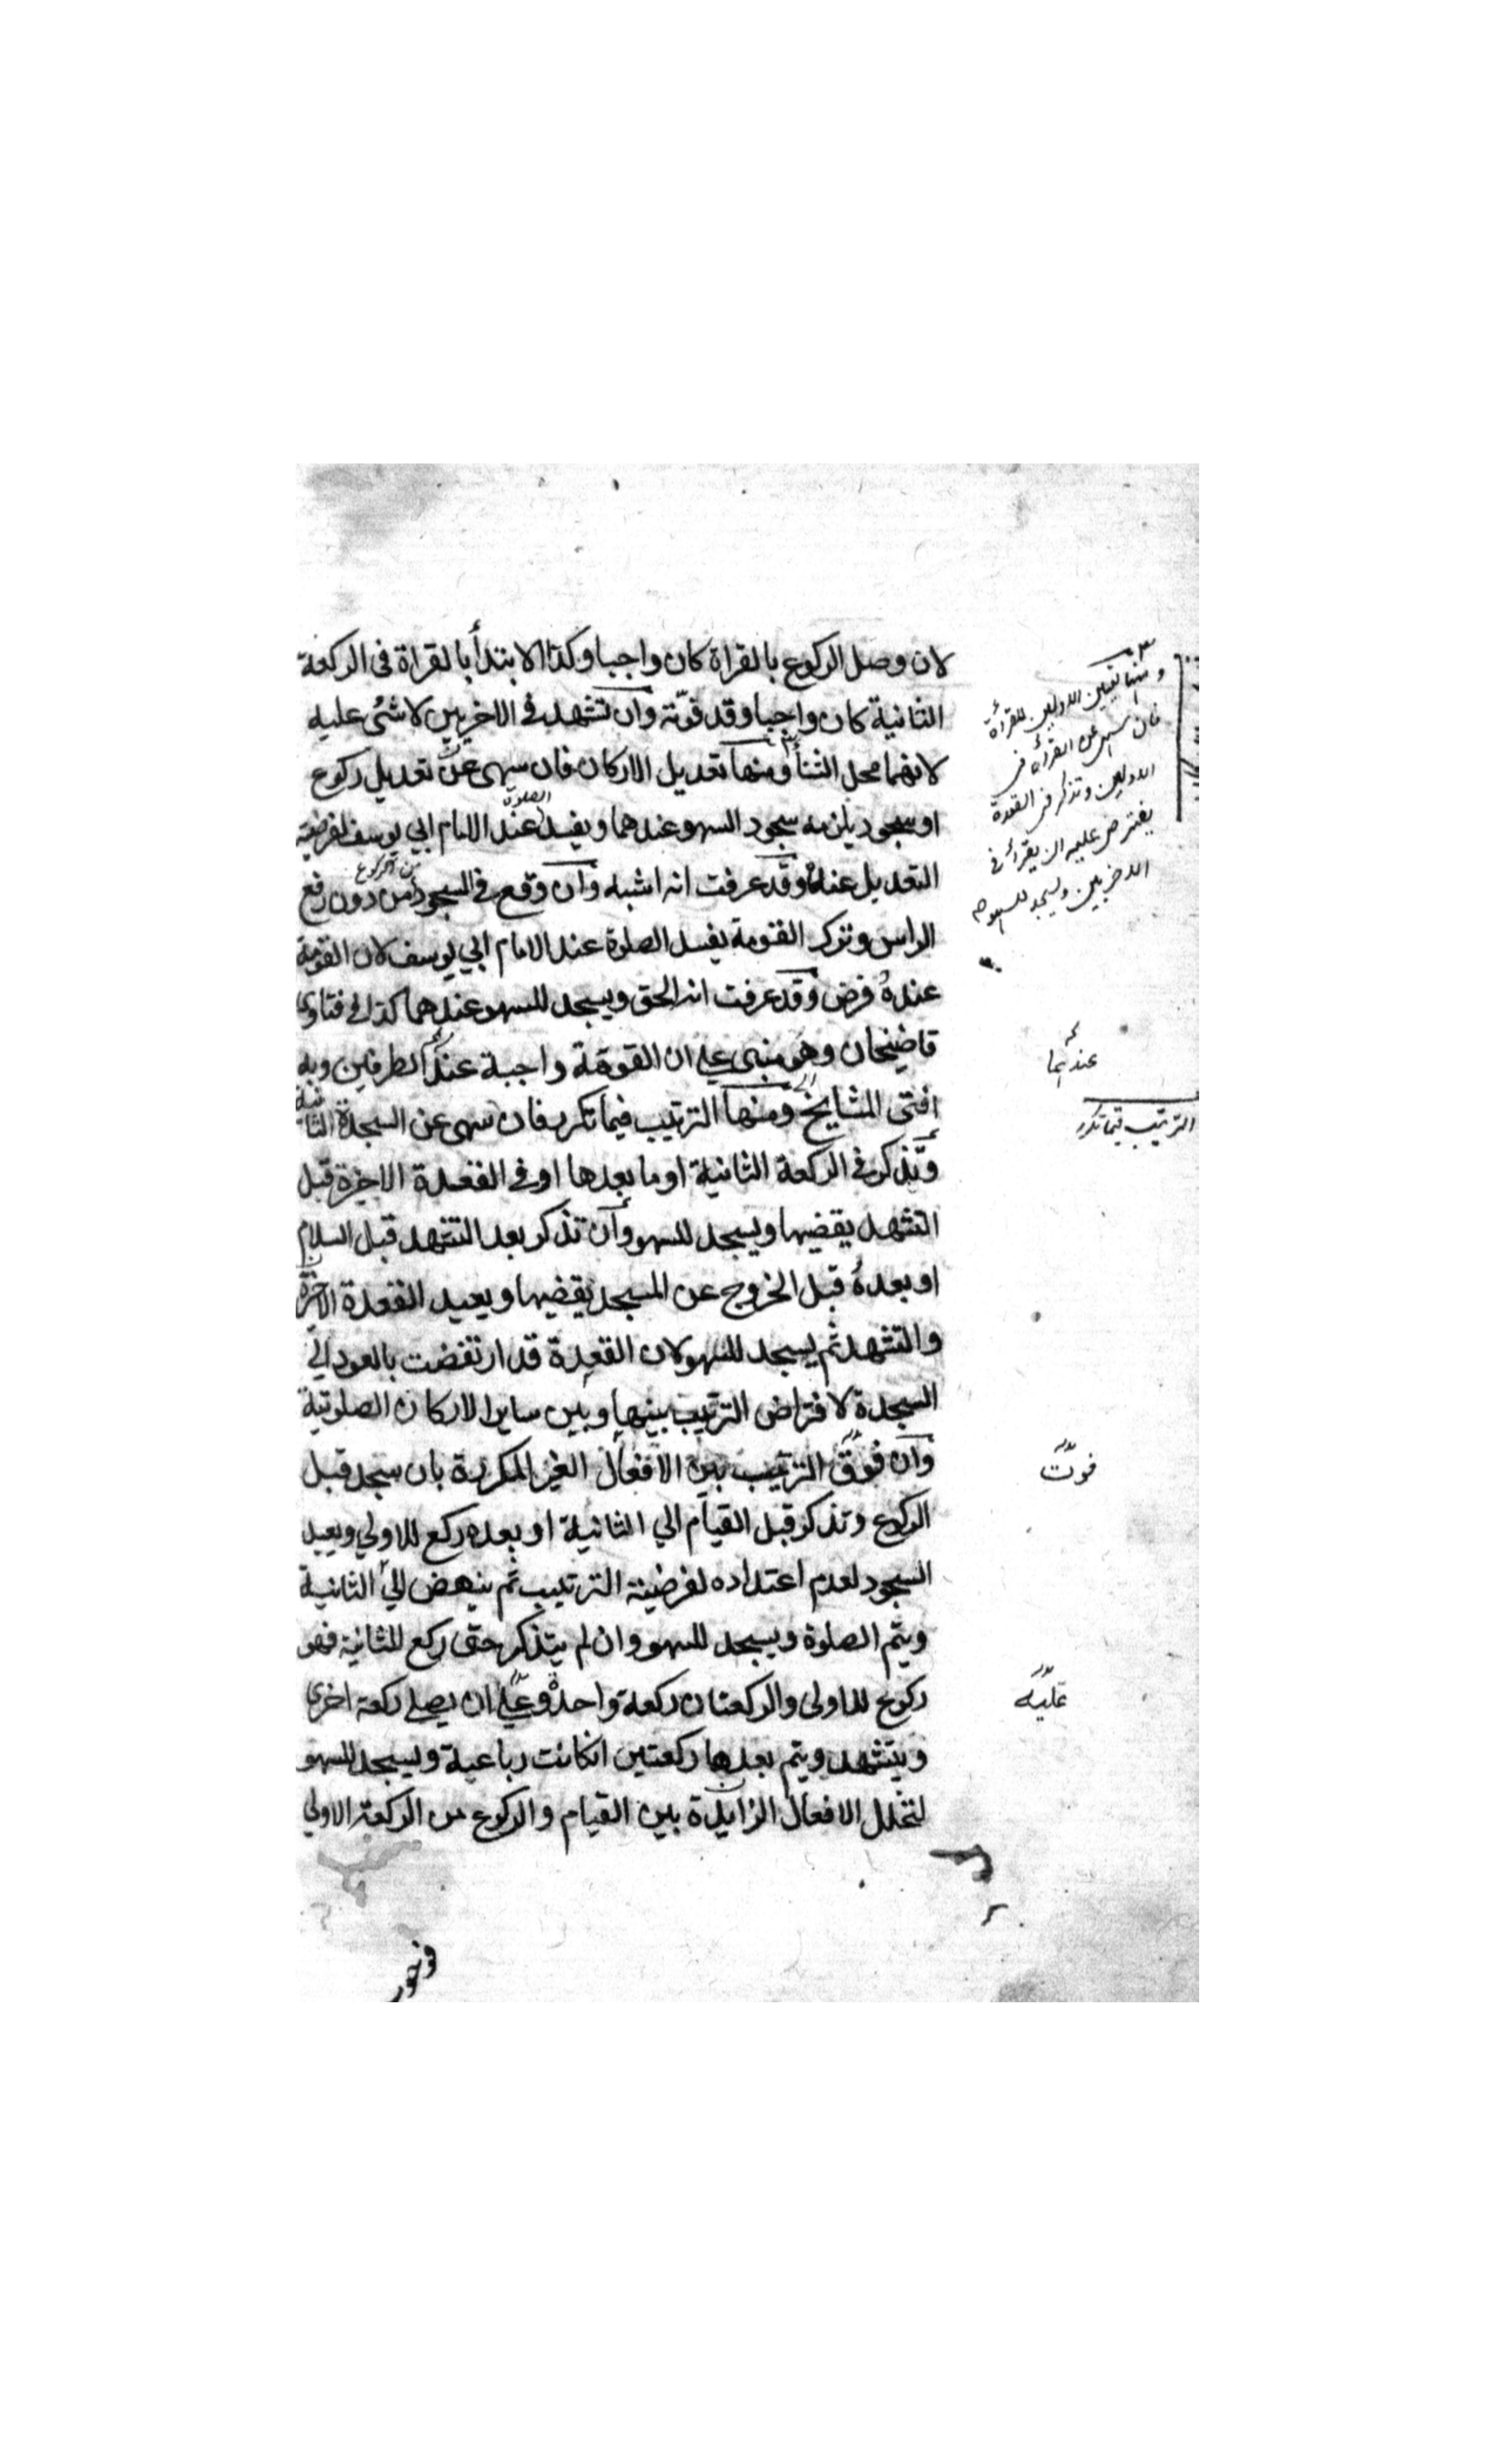 لان وصل الركوع بالقراة كان واجبا وكذا الابتدأ بالقراة فى الركعة
الثانية كان واجبا وقد فوّته وان تشهد فى الاخريين لا شئ عليه
لانهما محل الثنأ ومنها تعديل الاركان فان سهى عن تعديل ركوع
او سجود يلزمه سجود السهو عندهما ويفسد الصلوة عند الامام ابي يوسف لفرضية
التعديل عنده وقد عرفت انه اشبه وان وقع فى السجود من الركوع من دون رفع
الراس وترك القومة يفسد الصلوة عند الامام ابي يوسف لان القومة
عنده فرض وقد عرفت انه الحق ويسجد للسهو عندهما كذا في فتاوى
قاضيخان وهو مبنى على ان القومة واجبة عند الطرفين وبه
افتى المشايخ ومنها الترتيب فيما تكرر فان سهى عن السجدة الثانية
وتذكر فى الركعة الثانية او ما بعدها او فى القعدة الاخرة قبل
التشهد يقضيها ويسجد للسهو وان تذكر بعد التشهد قبل السلام
او بعده قبل الخروج عن المسجد يقضيها ويعيد القعدة الاخرة
والتشهد ثم يسجد للسهو لان القعدة قد ارتفضت بالعود الي
السجدة لافتراض الترتيب بينها وبين ساير الاركان الصلوتية
وان فوق الترتيب بين الافعال الغير المكررة بان سجد قبل
الركوع وتذكر قبل القيام الي الثانية او بعده ركع للاولي ويعيد
السجود لعدم اعتداده لفرضية الترتيب ثم ينهض الي الثانية
ويتم الصلوة ويسجد للسهو وان لم يتذكر حتى ركع للثانية فهو
ركوع للاولى والركعتان ركعة واحدة وعلي ان يصلي ركعة اخرى
ويتشهد ويتم بعدها ركعتين انكانت رباعية ويسجد للسهو
لتخلل الافعال الزايدة بين القيام والركوع من الركعة الاولي
ومنها تعيين الاوليين للقرأة
فان سهى عن القرأة فى
الاوليين وتذكر فى القعدة
يفترض عليه ان يقرأ فى
الاخريين ويسجد للسهو
عندهما
الترتيب فيما تكرر
فوّت
عليه